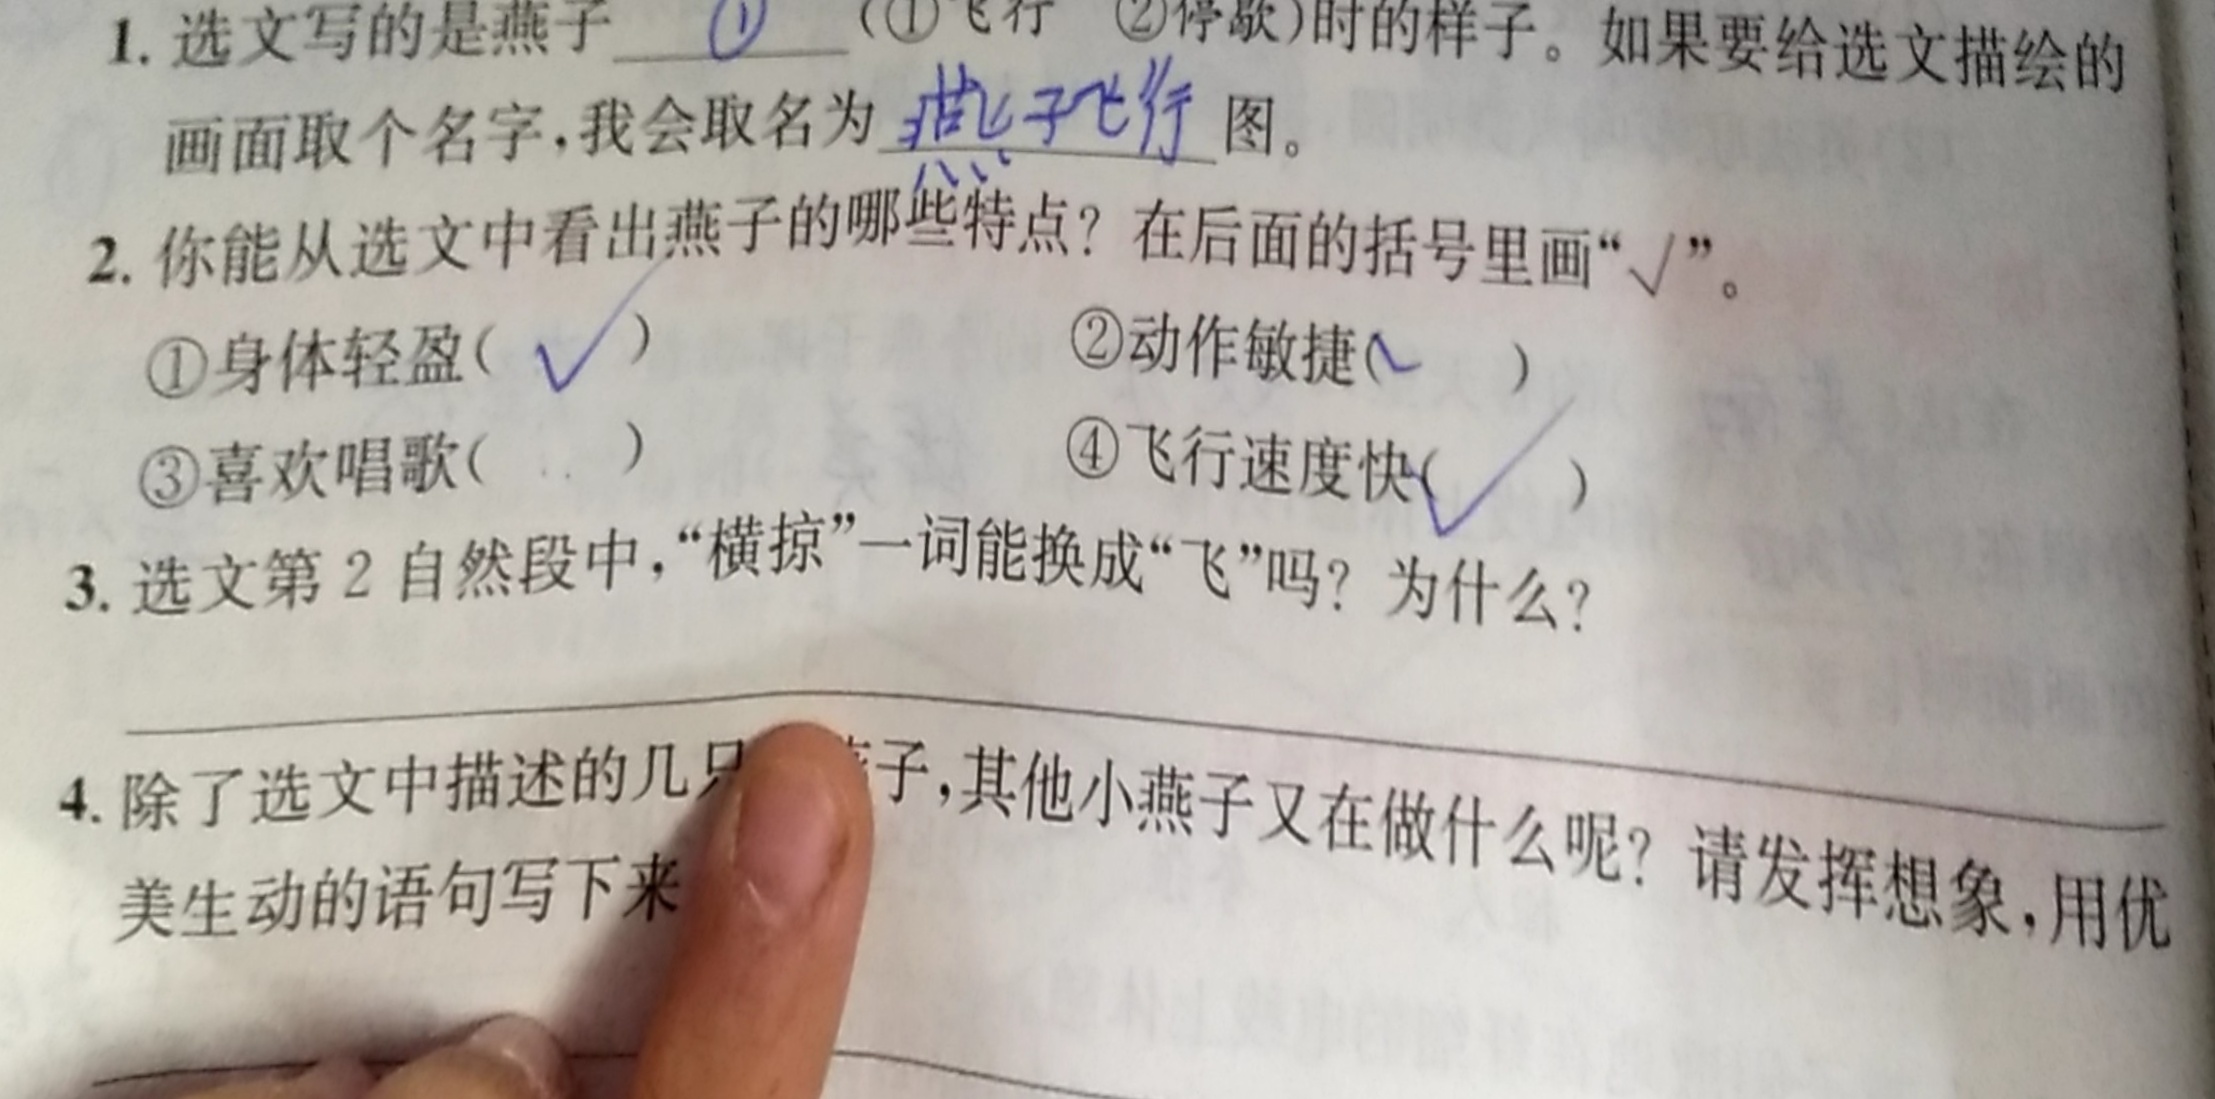 1. 选文写的是燕子 ① (①飞行 ②停歇)时的样子。如果要给选文描绘的
画面取个名字,我会取名为 燕子飞行 图。
2. 你能从选文中看出燕子的哪些特点? 在后面的括号里画“√”。
①身体轻盈( √ ) ②动作敏捷(√ )
③喜欢唱歌( ) ④飞行速度快(√ )
3. 选文第 2 自然段中,“横掠”一词能换成“飞”吗? 为什么?
4. 除了选文中描述的几只 子,其他小燕子又在做什么呢? 请发挥想象,用优
美生动的语句写下来